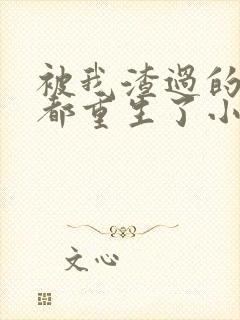 被我渣过的
都重生了小
文心